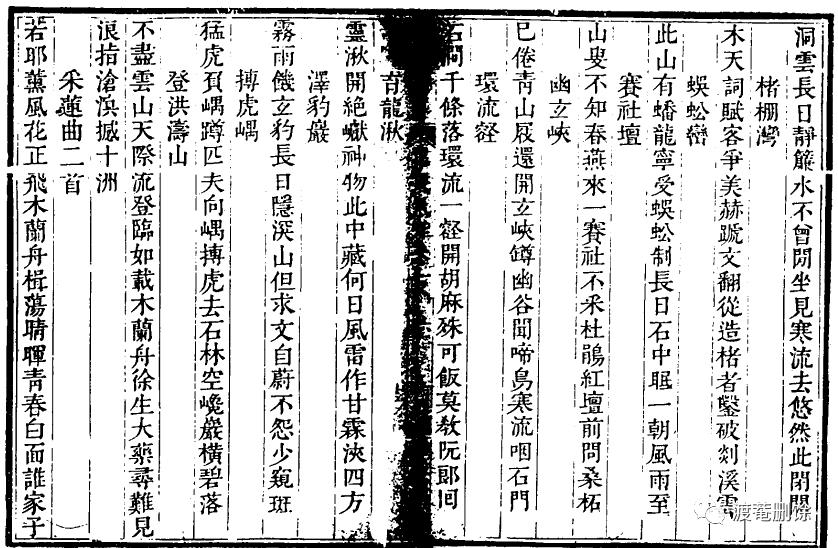 洞雲長日靜簾水不曾閒坐見寒流去悠然此閉關
楮棚灣
木天詞賦客爭美赫蹏文翻從造楮者鑿破剡溪雲
蜈蚣巒
此山有蟠龍寧受蜈蚣制長日石中眠一朝風雨至
賽社壇
山叟不知春燕來一賽社不釆杜鵑紅壇前問桑柘
幽玄峽
巳倦青山屐還開玄峽罇幽谷聞啼鳥寒流咽石門
環流壑
石澗千條落環流一壑開胡麻殊可飯莫敎阮郎回
龍湫
靈湫開絶巘神物此中藏何日風雷作甘霖浹四方
澤豹巖
霧雨饑玄豹長日隱深山但求文自蔚不怨少窺斑
搏虎嵎
猛虎負嵎蹲匹夫向嵎搏虎去石林空巉巖橫碧落
登洪濤山
不盡雲山天際流登臨如載木蘭舟徐生大藥尋難見
浪指滄溟撼十洲
采蓮曲二首
若耶薰風花正飛木蘭舟楫蕩晴暉青春白面誰家子
渡菴删馀